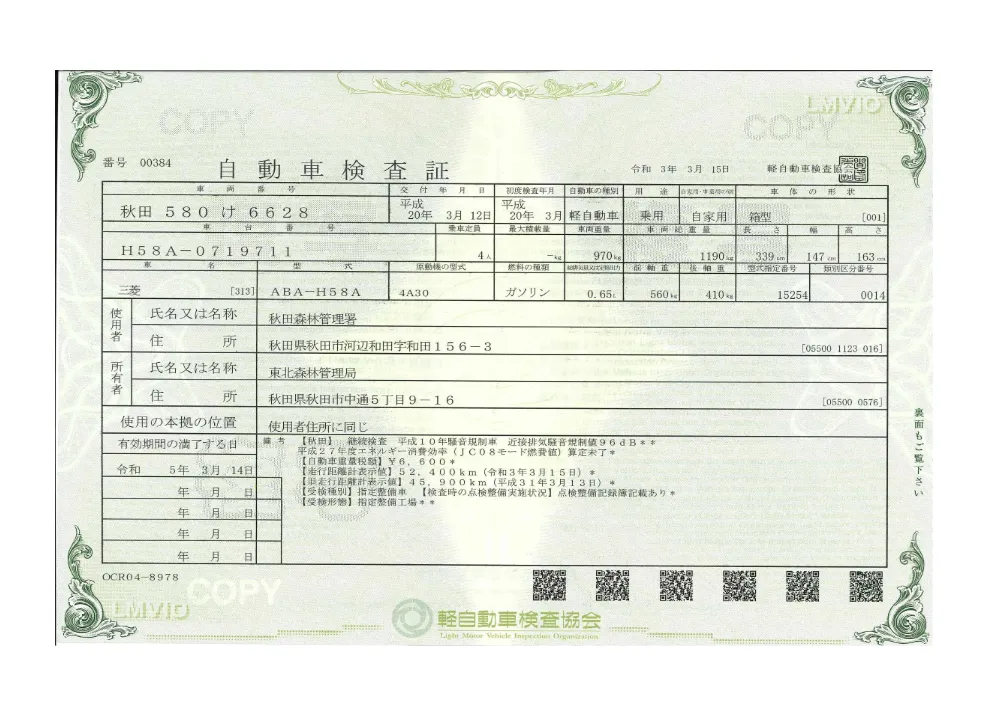 COPY
COPY
LMVIO
番号 00384
自動車検査証
令和 3年 3月 15日 軽自動車検査協会
車両番号 交付年月日 初度検査年月 自動車の種別 用途 自家用・事業用の別 車体の形状
秋田 580 け 6628 平成 20年 3月 12日 平成 20年 3月 軽自動車 乗用 自家用 箱型 [001]
車台番号 乗車定員 最大積載量 車両重量 車両総重量 長さ 幅 高さ
H58A-0719711 4人 -kg 970kg 1190kg 339cm 147cm 163cm
車名 型式 原動機の型式 燃料の種類 総排気量又は定格出力 前軸重 後軸重 型式指定番号 類別区分番号
三菱 [313] ABA-H58A 4A30 ガソリン 0.65L 560kg 410kg 15254 0014
使用者 氏名又は名称 秋田森林管理署
住所 秋田県秋田市河辺和田字和田156-3 [05500 1123 016]
所有者 氏名又は名称 東北森林管理局
住所 秋田県秋田市中通5丁目9-16 [05500 0576]
使用の本拠の位置 使用者住所に同じ
有効期間の満了する日 備考 【秋田】 継続検査 平成10年騒音規制車 近接排気騒音規制値96dB**
平成27年度エネルギー消費効率(JC08モード燃費値)算定未了*
【自動車重量税額】¥6,600*
令和 5年 3月 14日 【走行距離計表示値】52,400km(令和3年3月15日)*
【旧走行距離計表示値】45,900km(平成31年3月13日)*
年 月 日 【受検種別】指定整備車 【検査時の点検整備実施状況】点検整備記録簿記載あり*
【受検形態】指定整備工場**
年 月 日
年 月 日
年 月 日
裏面もご覧下さい
OCR04-8978
COPY
LMVIO
軽自動車検査協会
Light Motor Vehicle Inspection Organization